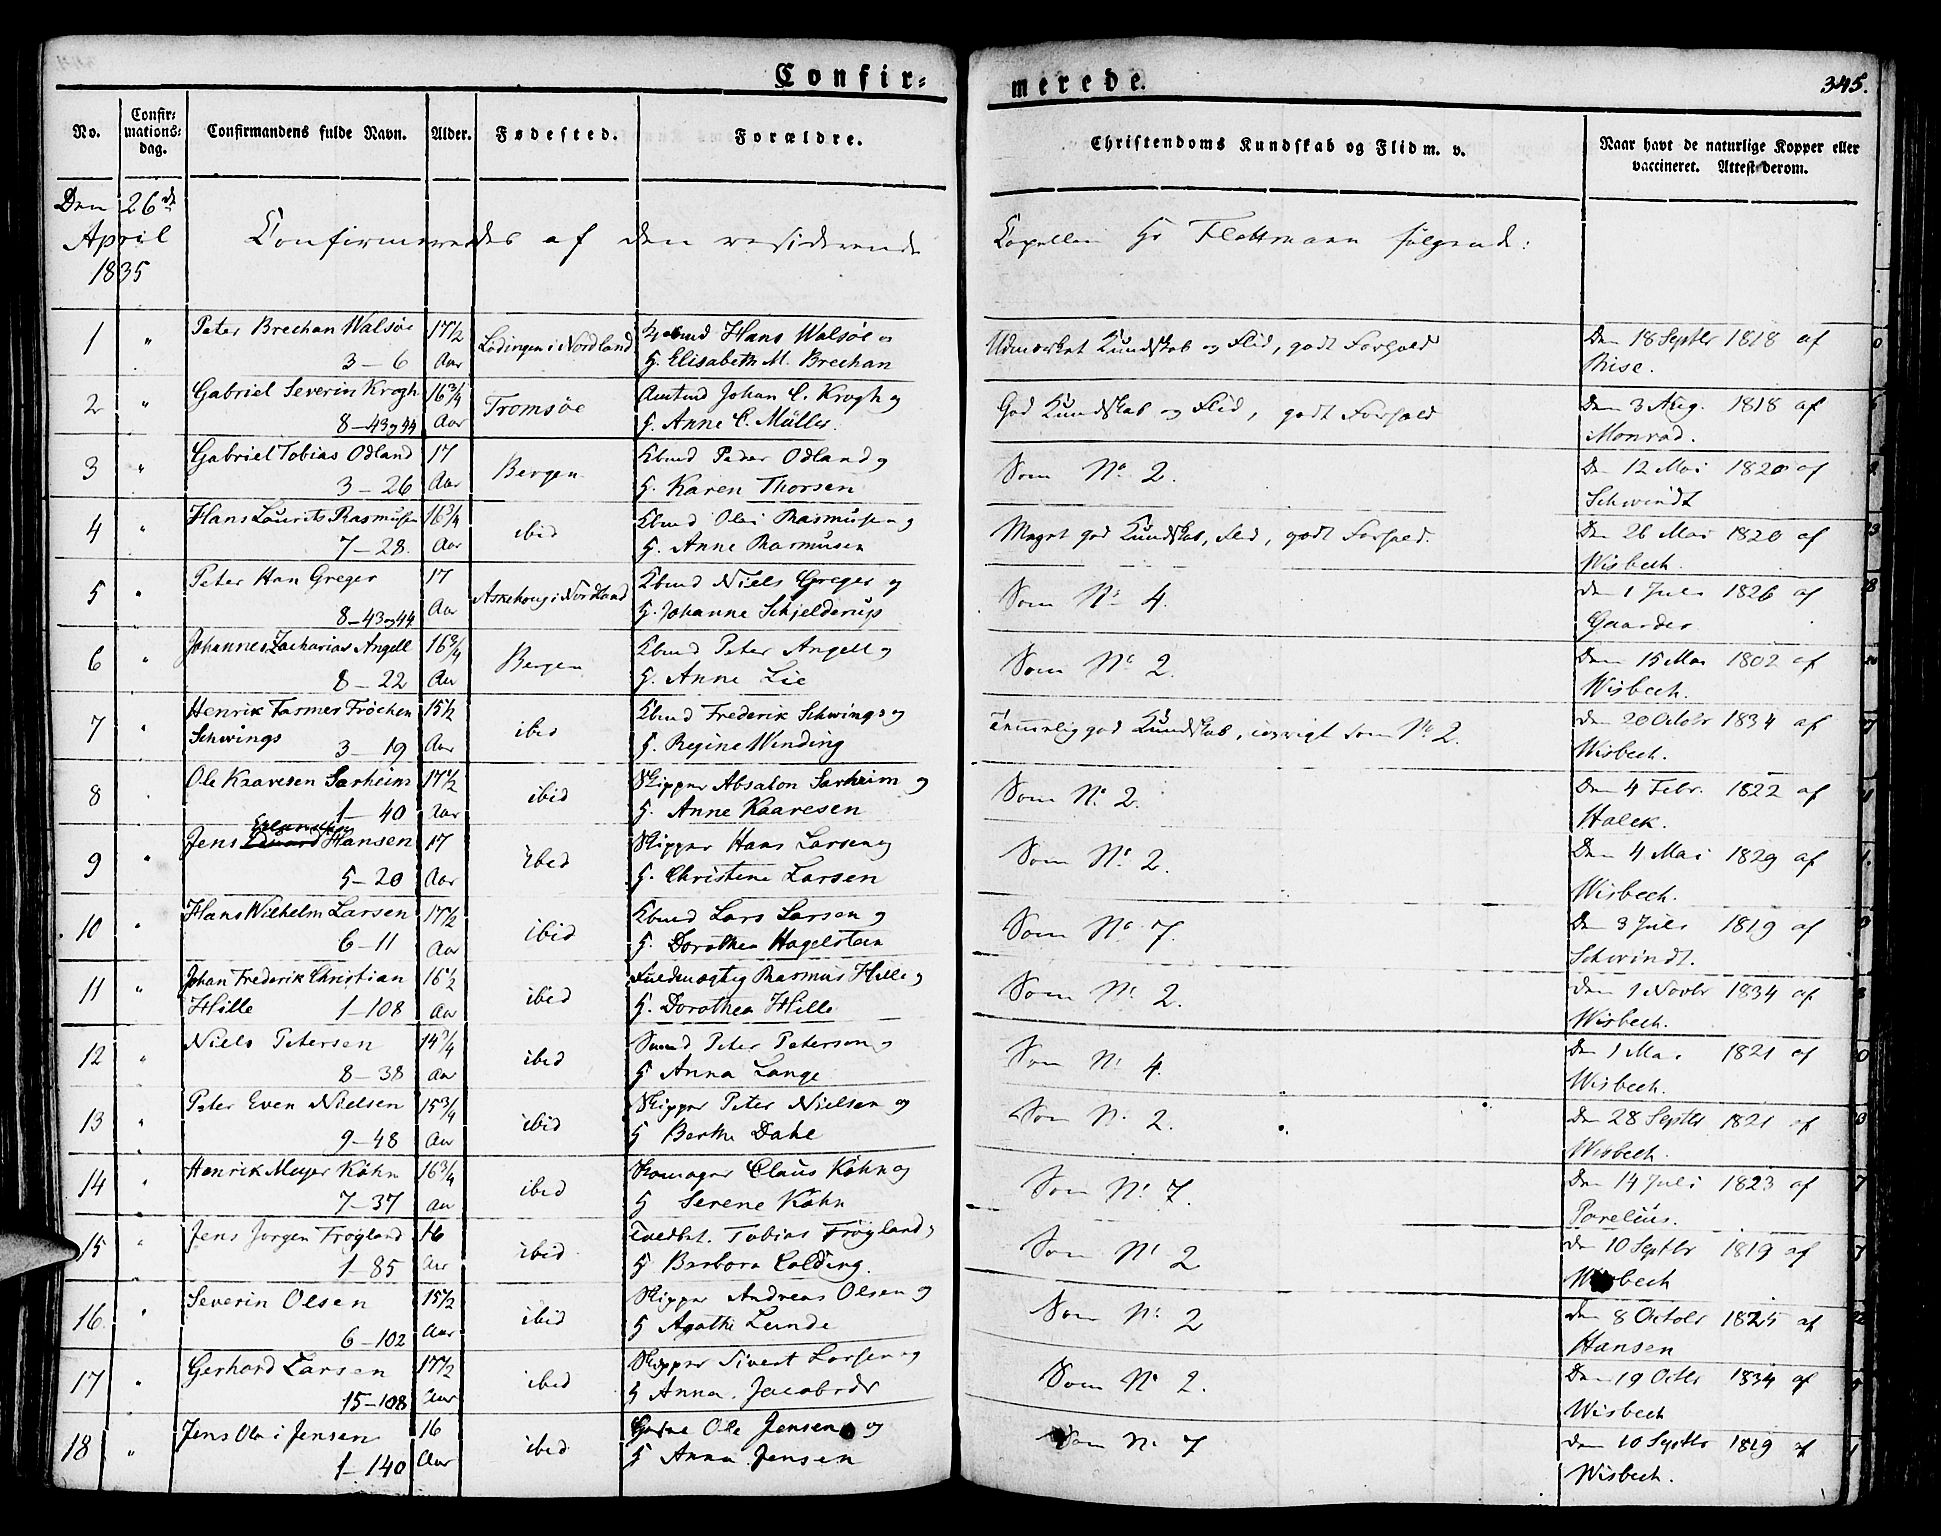 Confir= merede. 345.
No. Confir= mations= dag. Confirmandens fulde Navn. Alder. Fødested. Forældre. Christendoms Kundskab og Flid m. v. Naar havt de naturlige Kopper eller vaccineret. Attest derom.
Den 26de
April
1835
Confirmeredes af den residerende Capellan Hr Flottmann følgende:
1 " Peter Brechan Walsøe 17½ Lødingen i Nordland Hans Walsøe og Udmærket Kundskab og Flid, godt Forhold Den 18 Septbr 1818 af
3 – 6 Aar H. Elisabeth M. Brechan Bise.
2 " Gabriel Severin Krogh 16¾ Tromsøe Amtmd Johan C. Krogh og God Kundskab og Flid, godt Forhold Den 3 Aug. 1818 af
8 – 43 og 44 Aar H. Anne C. Müller. Monrad.
3 " Gabriel Tobias Odland 17 Bergen Kbmd Peder Odland og Som No 2. Den 12 Mai 1820 af
3 – 26 Aar H. Karen Thorsen Schwindt
4 " Hans Laurits Rasmusen 16¾ ibid Kbmd Ole Rasmusen og Meget god Kundskab, Flid, godt Forhold. Den 26 Mai 1820 af
7 – 28. Aar H. Anne Rasmusen Wisbech.
5 " Peter Han Greger 17 Askehoug i Nordland Kbmd Niels Greger og Som No 4. Den 1 Juli 1826 af
8 – 43 og 44 Aar H. Johanne Schjelderup Gaarder
6 " Johannes Zacharias Angell 16¾ Bergen Kbmd Peter Angell og Som No 2. Den 15 Mai 1802 af
8 – 22 Aar H. Anne Lie Wisbech.
7 " Henrik Farmer Frøchen 15½ ibid Kbmd Frederik Schwings og Temmelig god Kundskab, iøvrigt som No 2. Den 20 Octobr 1834 af
Schwings 3 – 19 Aar H. Regine Wending Wisbech.
8 Ole Kaaresen Sarheim 17½ ibid Skipper Absalon Sarheim og Som No 2. Den 4 Febr. 1822 af
1 – 40 Aar H. Anne Kaaresen Halck.
9 " Jens Hansen 17 ibid Skipper Hans Larsen og Som No 2. Den 4 Mai 1829 af
5 – 20 Aar H. Christine Larsen Wisbech.
10 " Hans Wilhelm Larsen 17½ ibid Kbmd Lars Larsen og Som No 7. Den 3 Juli 1819 af
6 – 11 Aar H. Dorothea Hagelsteen Schwindt.
11 " Johan Frederik Christian 16½ ibid Fuldmægtig Rasmus Hille og Som No 2. Den 1 Novbr 1834 af
Hille 1 – 108 Aar H. Dorothea Hille Wisbech.
12 " Niels Petersen 14¾ ibid Peter Peterson og Som No 4. Den 1 Mai 1821 af
8 – 38 Aar H Anna Lange Wisbech.
13 " Peter Even Nielsen 15¾ ibid Skipper Peter Nielsen og Som No 2. Den 28 Septbr 1821 af
9 – 48 Aar H Berthe Dahl Wisbech.
14 " Henrik Meyer Køhn 16¾ ibid Skomager Claus Køhn og Som No 7. Den 14 Juli 1823 af
7 – 37 Aar H Serene Køhn Parelius.
15 " Jens Jørgen Frøyland 16 ibid. Tobias Frøyland, Som No 2 Den 10 Septbr 1819 af
1 – 85 Aar H Barbora Colding. Wisbech
16. " Severin Olsen 15½ ibid Skipper Andreas Olsen og Som No 2 Den 8 Octobr 1825 af
6 – 102 Aar H Agathe Lunde Hansen
17 " Gerhard Larsen 17½ ibid Skipper Sivert Larsen og Som No 2. Den 19 Octbr 1834 af
15 – 108 Aar H Anna Jacobsdr Wisbech
18 " Jens Olai Jensen 16 ibid Ole Jensen og Som No 7 Den 10 Septbr 1819 af
1 – 140 Aar H Anna Jensen Wisbech.